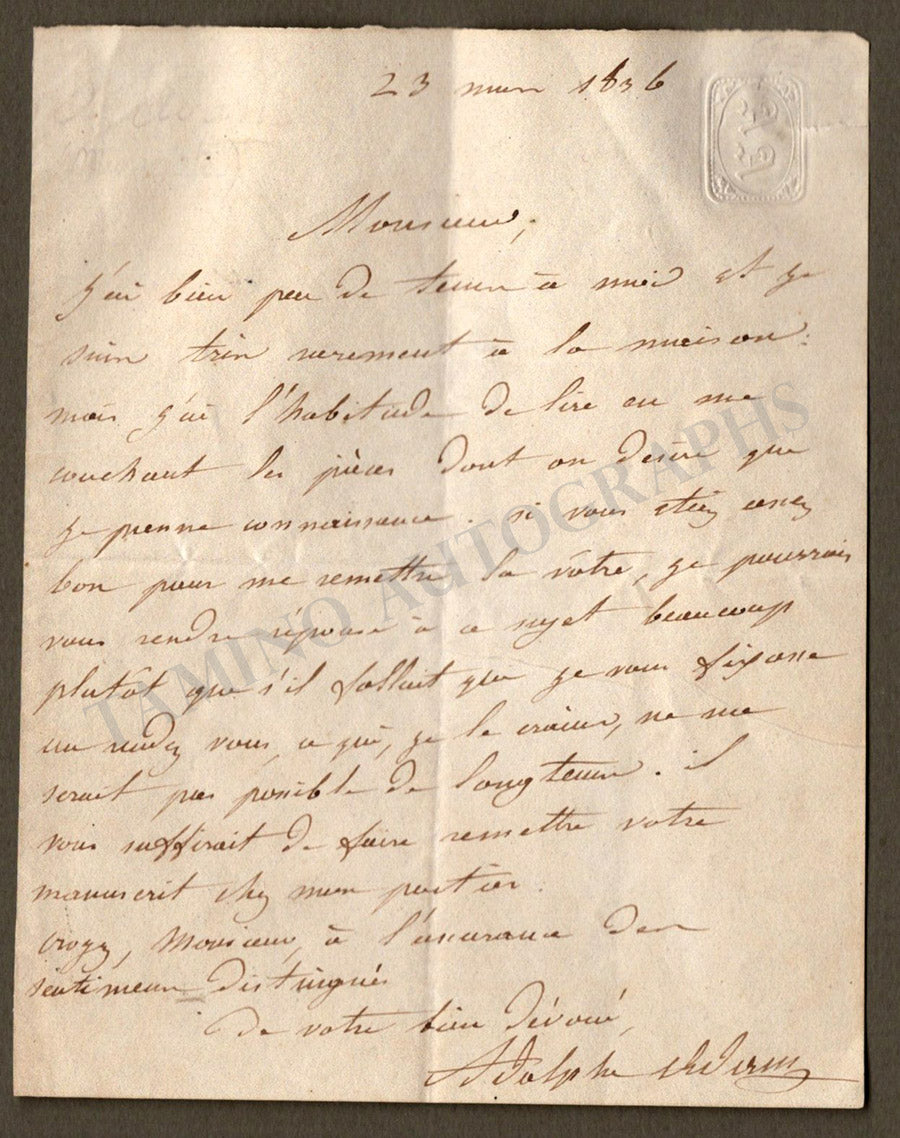 23 mars 1836
Monsieur,
J'ai bien peu de tems à moi et je
suis très rarement à la maison:
mais j'ai l'habitude de lire en me
couchant les pièces dont on désire que
je prenne connaissance. si vous étiez assez
bon pour me remettre la vôtre, je pourrais
vous rendre réponse à ce sujet beaucoup
plutôt que s'il fallait que je vous fixasse
un rendez vous, ce qui, je le crains, ne me
serait pas possible de longtems. il
vous suffirait de faire remettre votre
manuscrit chez mon portier.
croyez, Monsieur, à l'assurance des
sentimens distingués
de votre bien dévoué,
Adolphe Adam
TAMINO AUTOGRAPHS